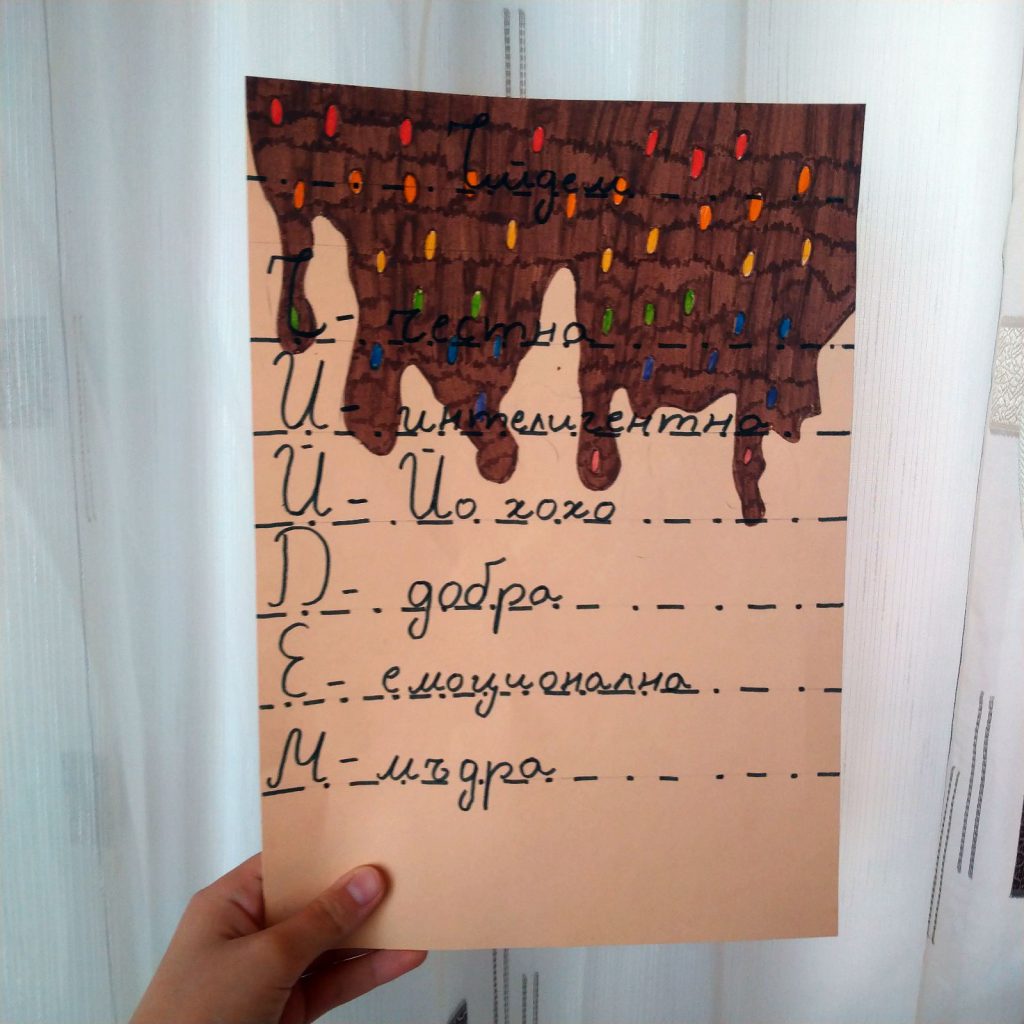 Чийдем
Ч - честна
И - интелигентна
Й - Йо хохо
Д - добра
Е - емоционална
М - мъдра